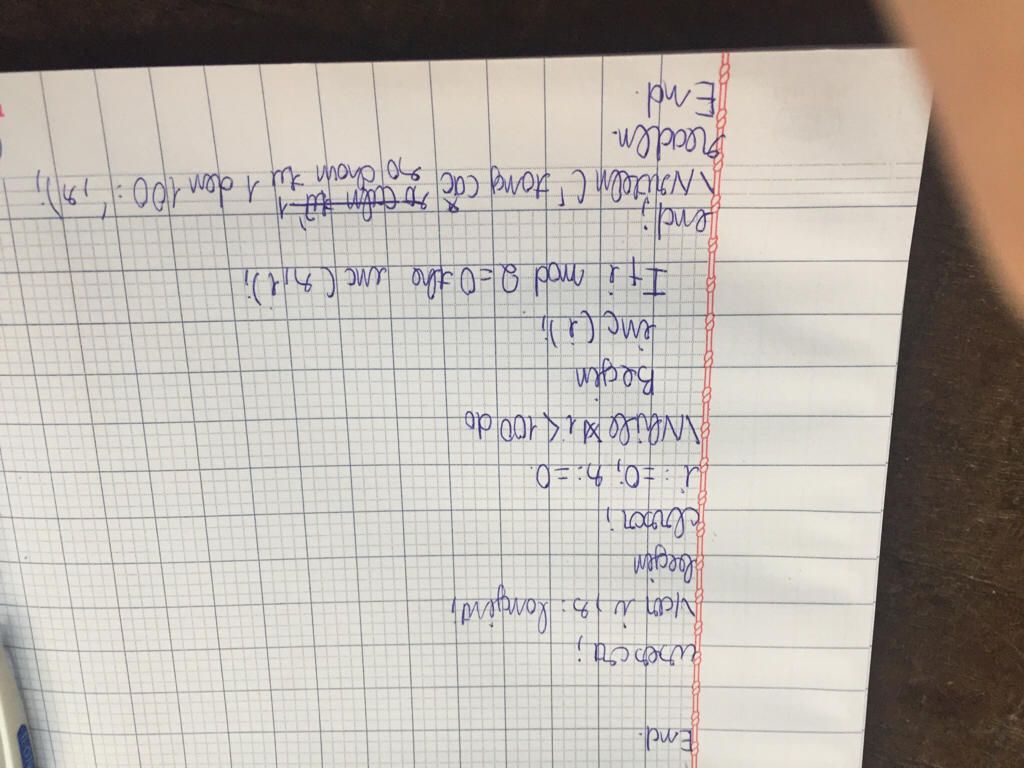 End.
uses crt;
var i, s: longint;
begin
clrscr;
i:=0; s:=0.
While i<100 do
Begin
inc(i);
If i mod 2=0 the inc(s,i);
end;
Writeln('tong cac so chan tu 1 den 100: ',s);
readln.
End.